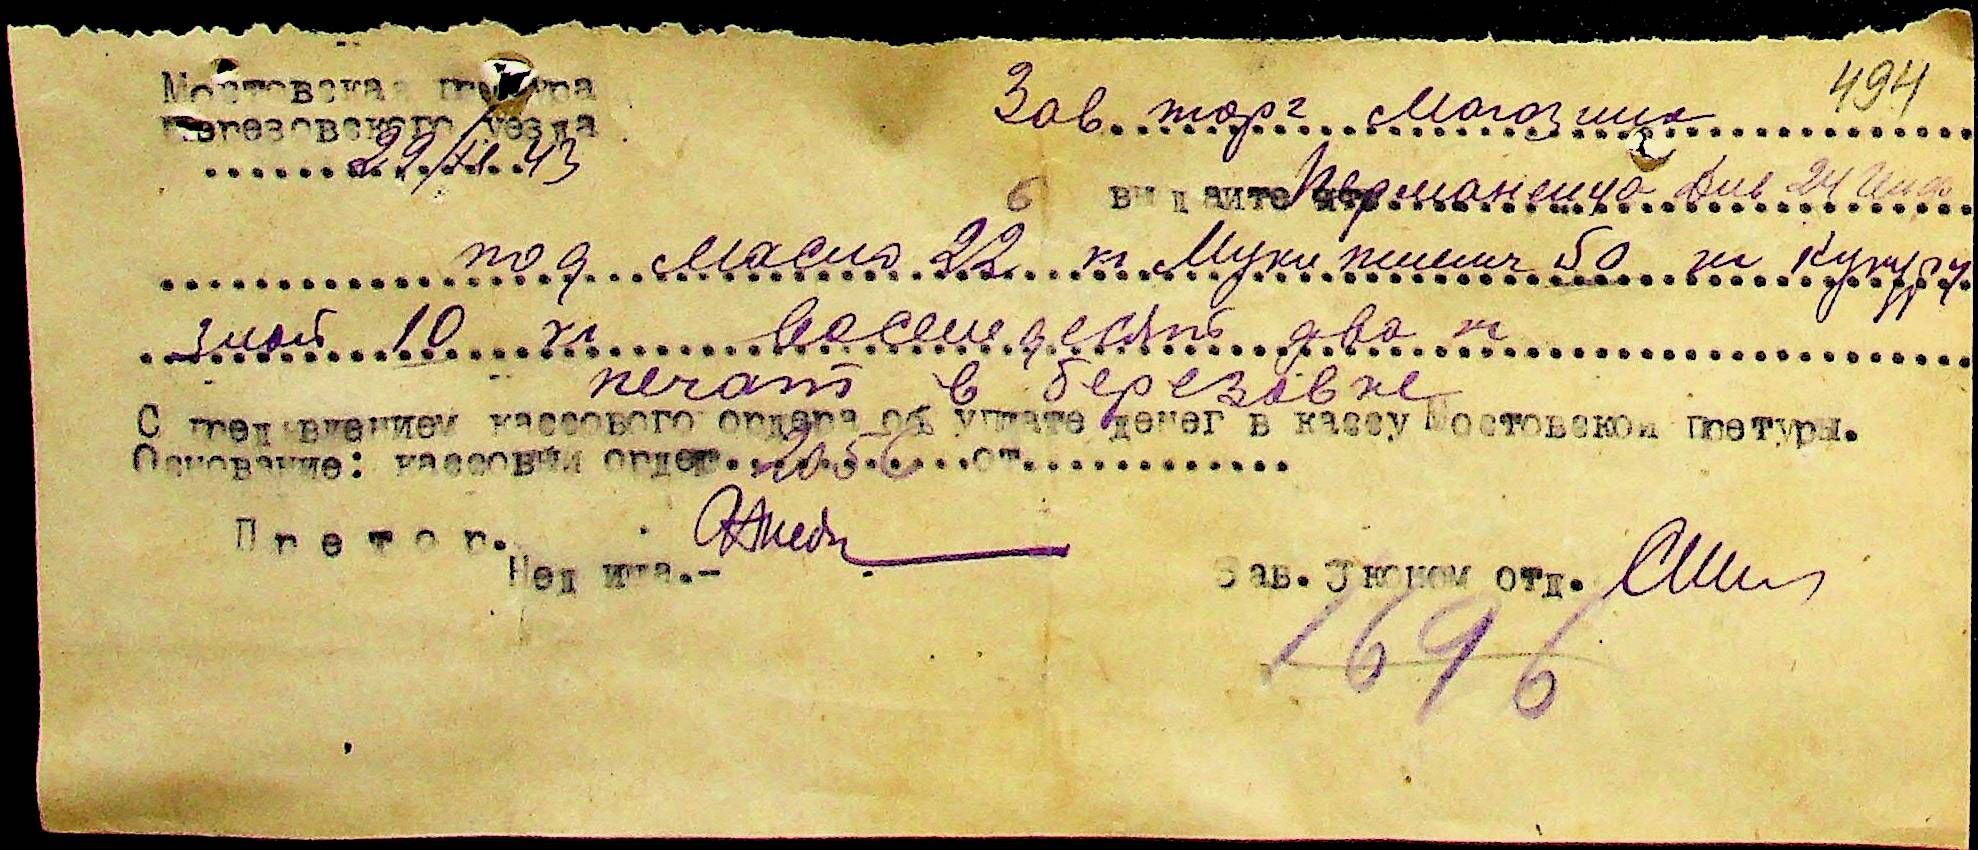 494
Мостовская претура
Березовского уезда
29/XI.43
Зав. торг магазина
выдайте
под масло 22 кг Муки пшенич 50 кг кукуру
зной 10 кг восемдесят два кг
печать в березовке
С пред'явлением кассового ордера об уплате денег в кассу Мостовской претуры.
Основание: кассовый ордер 2056 от
Претор.
Недина.-
Зав. Эконом отд.
1696